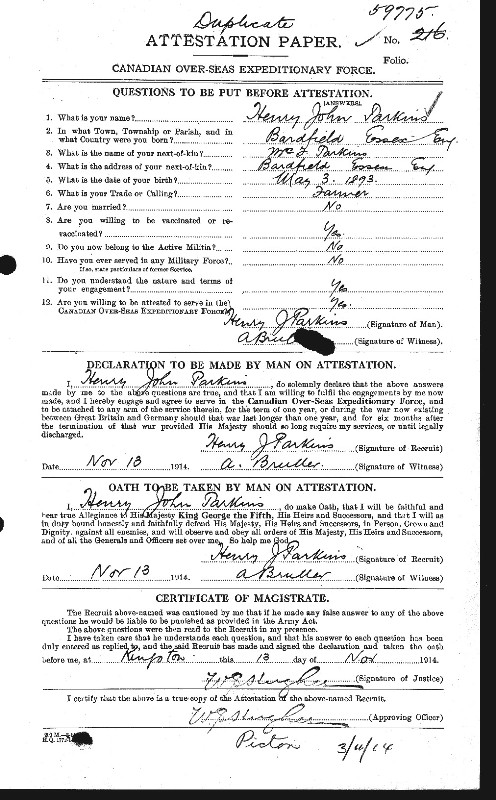 Duplicate
59775.
ATTESTATION PAPER.
No. 216
Folio.
CANADIAN OVER-SEAS EXPEDITIONARY FORCE.
QUESTIONS TO BE PUT BEFORE ATTESTATION.
(ANSWERS)
1. What is your name? Henry John Parkins
2. In what Town, Township or Parish, and in
what Country were you born? Bardfield Essex Eng
3. What is the name of your next-of-kin? Parkins
4. What is the address of your next-of-kin? Bardfield Essex Eng
5. What is the date of your birth? May 3. 1893.
6. What is your Trade or Calling? Farmer
7. Are you married? No
8. Are you willing to be vaccinated or re-
vaccinated? Yes
9. Do you now belong to the Active Militia? No
10. Have you ever served in any Military Force? No
If so, state particulars of former Service.
11. Do you understand the nature and terms of
your engagement? Yes
12. Are you willing to be attested to serve in the
CANADIAN OVER-SEAS EXPEDITIONARY FORCE? Yes.
Henry J Parkins (Signature of Man).
(Signature of Witness).
DECLARATION TO BE MADE BY MAN ON ATTESTATION.
I, Henry John Parkins, do solemnly declare that the above answers
made by me to the above questions are true, and that I am willing to fulfil the engagements by me now
made, and I hereby engage and agree to serve in the Canadian Over-Seas Expeditionary Force, and
to be attached to any arm of the service therein, for the term of one year, or during the war now existing
between Great Britain and Germany should that war last longer than one year, and for six months after
the termination of that war provided His Majesty should so long require my services, or until legally
discharged.
Henry J Parkins (Signature of Recruit)
Date Nov 13 1914. (Signature of Witness)
OATH TO BE TAKEN BY MAN ON ATTESTATION.
I, Henry John Parkins, do make Oath, that I will be faithful and
bear true Allegiance to His Majesty King George the Fifth, His Heirs and Successors, and that I will as
in duty bound honestly and faithfully defend His Majesty, His Heirs and Successors, in Person, Crown and
Dignity, against all enemies, and will observe and obey all orders of His Majesty, His Heirs and Successors,
and of all the Generals and Officers set over me. So help me God.
Henry J Parkins (Signature of Recruit)
Date Nov 13 1914. (Signature of Witness)
CERTIFICATE OF MAGISTRATE.
The Recruit above-named was cautioned by me that if he made any false answer to any of the above
questions he would be liable to be punished as provided in the Army Act.
The above questions were then read to the Recruit in my presence.
I have taken care that he understands each question, and that his answer to each question has been
duly entered as replied to, and the said Recruit has made and signed the declaration and taken the oath
before me, at Kingston this 13 day of Nov 1914.
(Signature of Justice)
I certify that the above is a true copy of the Attestation of the above-named Recruit.
(Approving Officer)
Picton 3/11/14